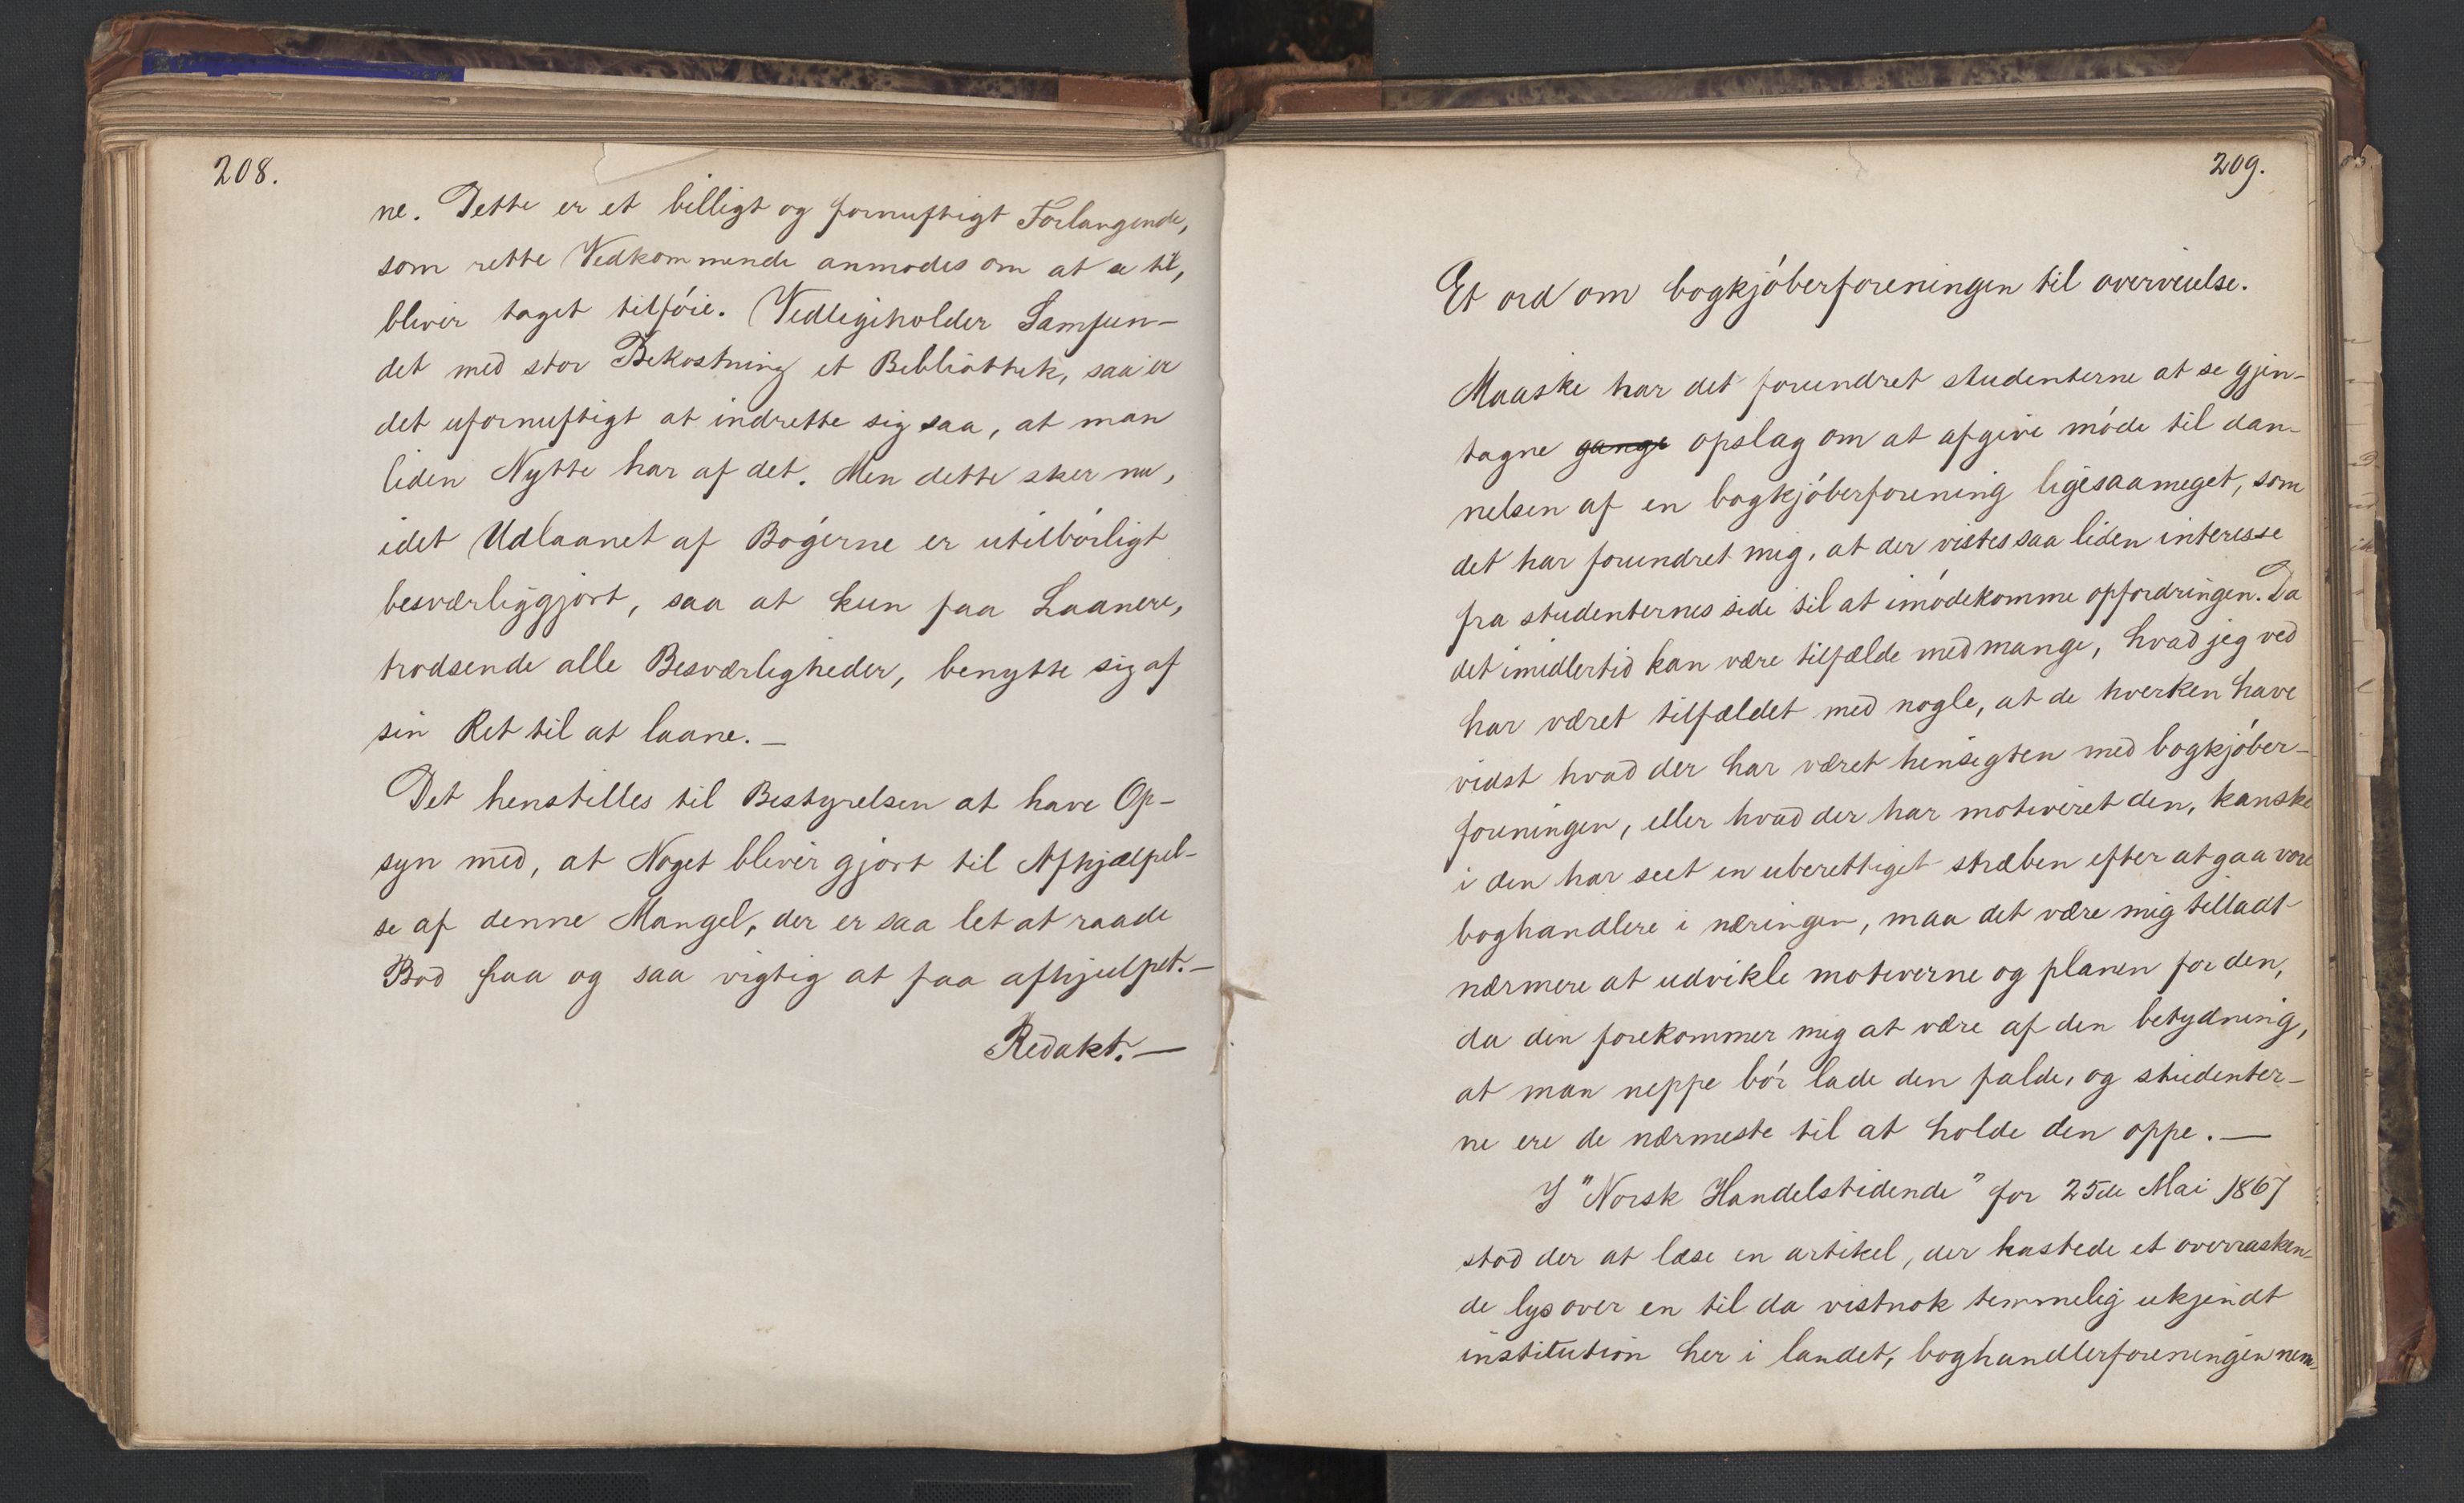 208.
ne. Dette er et billigt og fornuftigt Forlangende,
som rette Vedkommende anmodes om at se til,
bliver taget tilføie. Vedligeholder Samfun-
det med stor Bekostning et Bibliothek, saa er
det ufornuftigt at indrette sig saa, at man
liden Nytte har af det. Men dette sker nu,
idet Udlaanet af Bøgerne er utilbørligt
besværliggjort, saa at kun faa Laanere,
trodsende alle Besværligheder, benytte sig af
sin Ret til at laane. —
Det henstilles til Bestyrelsen at have Op-
syn med, at Noget bliver gjort til Afhjælpel-
se af denne Mangel, der er saa let at raade
Bod paa og saa vigtig at faa afhjulpet. —
Redakt. —
209.
Et ord om bogkjøberforeningen til overveielse.
Maaske har det forundret studenterne at se gjen-
tagne gange opslag om at afgive møde til dan-
nelsen af en bogkjøberforening ligesaameget, som
det har forundret mig, at der vistes saa liden interesse
fra studenternes side til at imødekomme opfordringen. Da
det imidlertid kan være tilfælde med mange, hvad jeg ved
har været tilfældet med nogle, at de hverken have
vidst hvad der har været hensigten med bogkjøber-
foreningen, eller hvad der har motiveret den, kanske
i den har seet en uberettiget stræben efter at gaa vore
boghandlere i næringen, maa det være mig tilladt
nærmere at udvikle motiverne og planen for den,
da den forekommer mig at være af den betydning,
at man neppe bør lade den falde, og studenter-
ne ere de nærmeste til at holde den oppe. —
I "Norsk Handelstidende" for 25de Mai 1867
stod der at læse en artikel, der kastede et overrasken-
de lys over en til da vistnok temmelig ukjendt
institution her i landet, boghandlerforeningen nem-